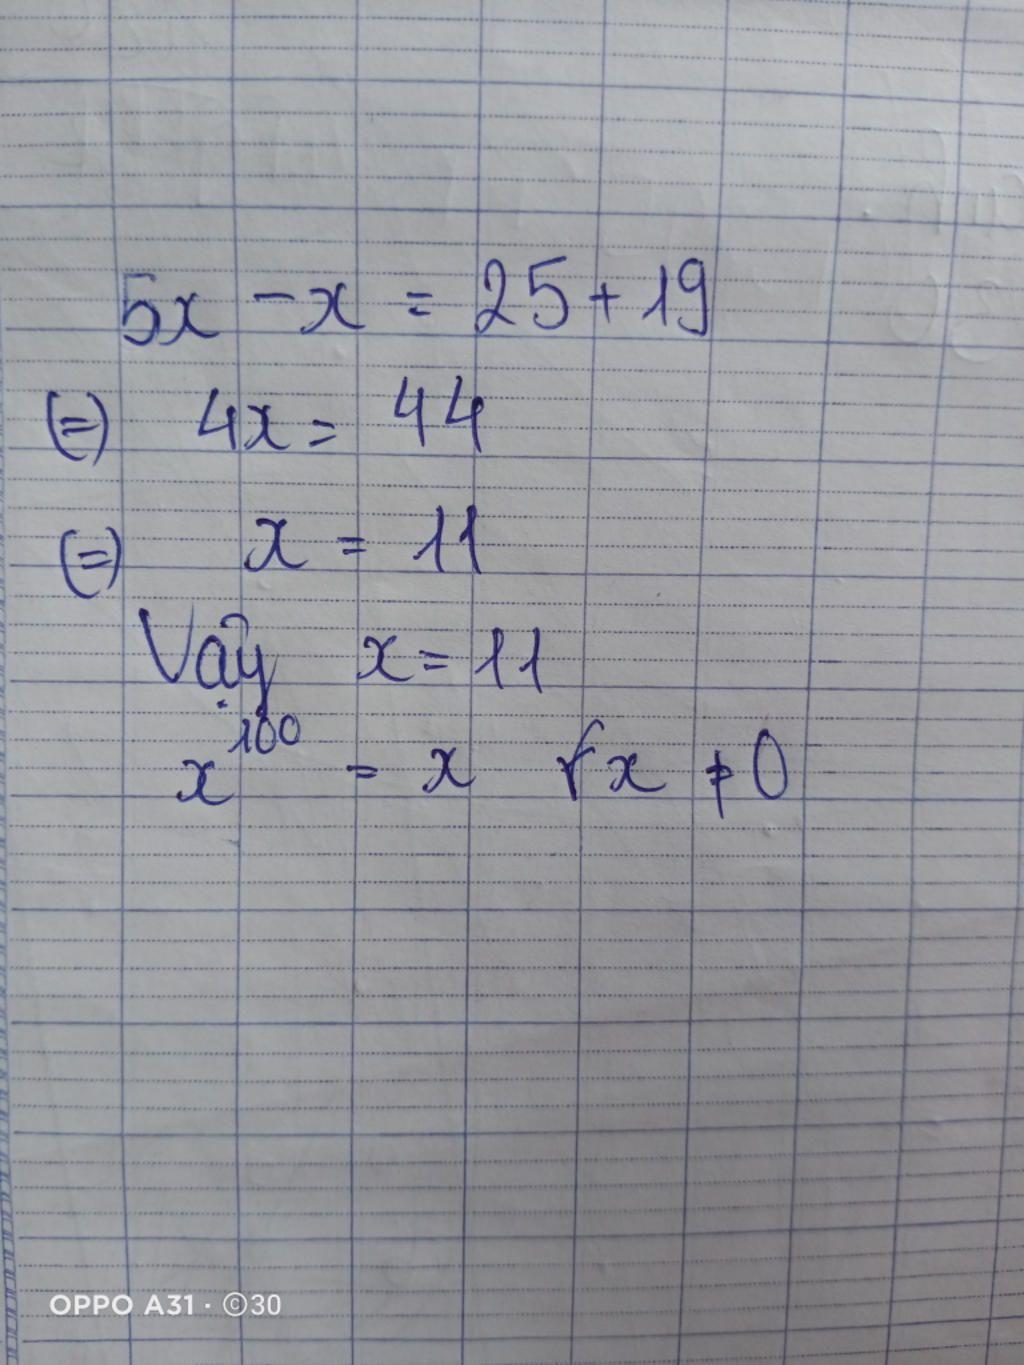 5x - x = 25 + 19
(=) 4x = 44
(=) x = 11
Vậy x = 11
x¹⁰⁰ = x x ≠ 0
OPPO A31 · ©30